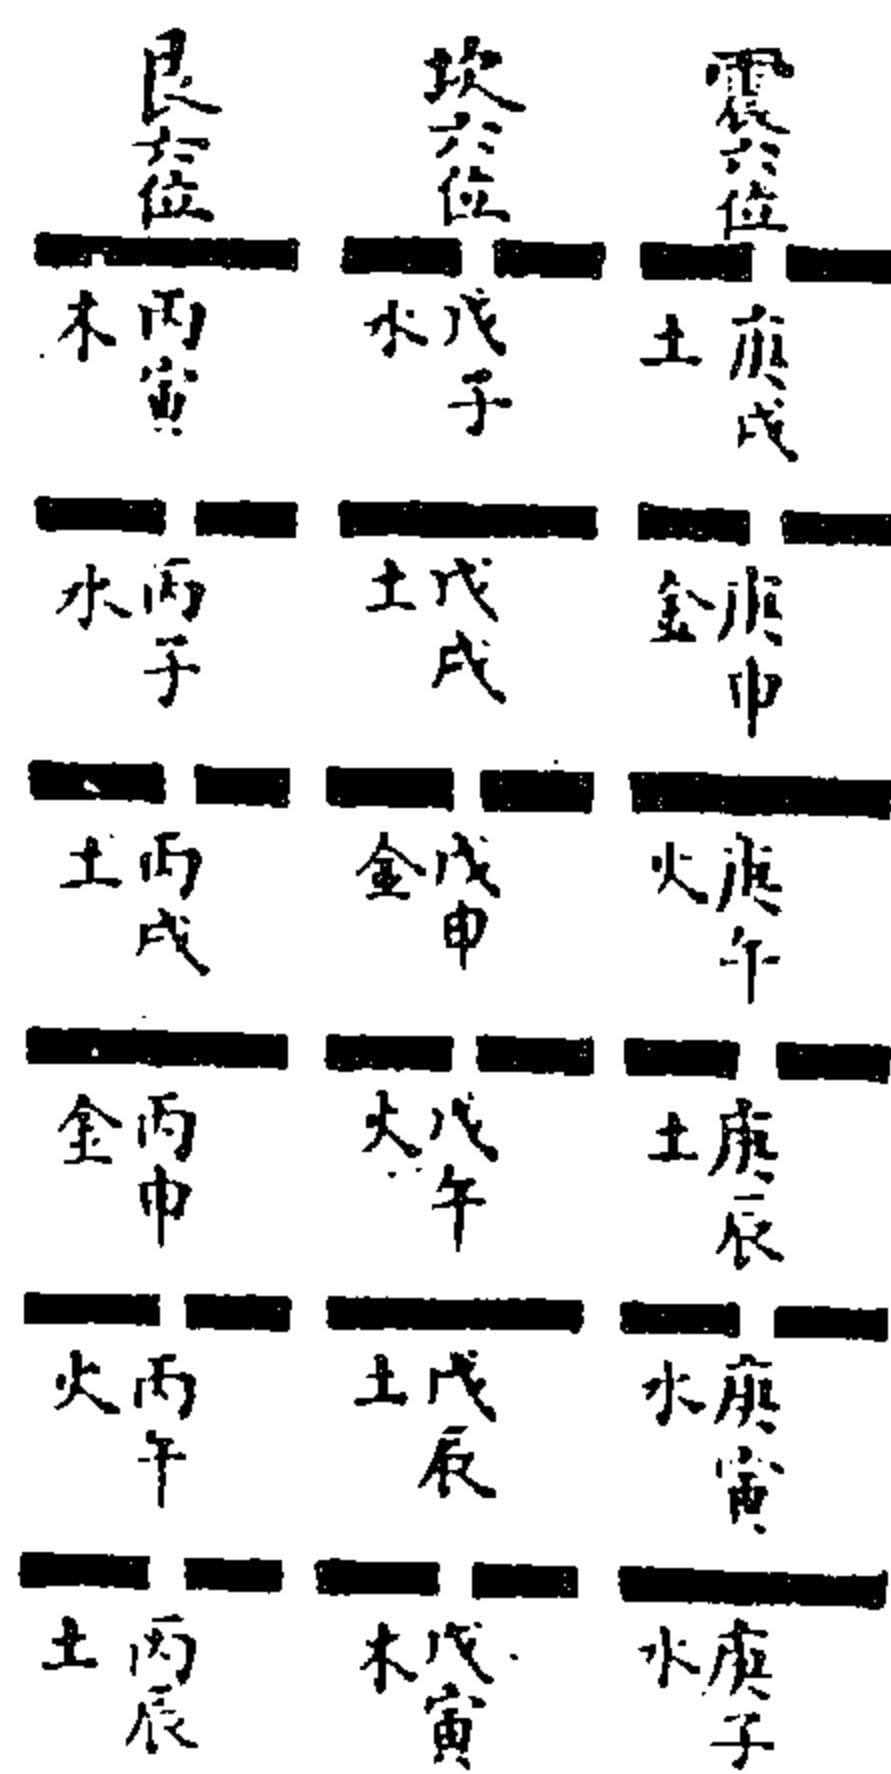 震六位
庚戌
土
庚申
金
庚午
火
庚辰
土
庚寅
水
庚子
水
坎六位
戊子
水
戊戌
土
戊申
金
戊午
火
戊辰
土
戊寅
木
艮六位
丙寅
木
丙子
水
丙戌
土
丙申
金
丙午
火
丙辰
土